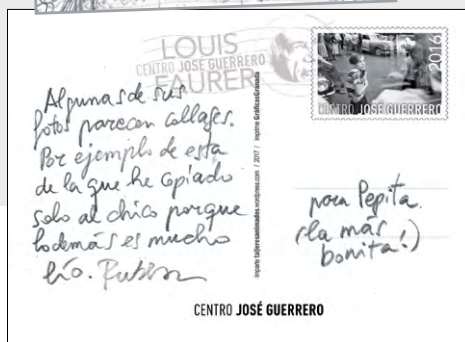 LOUIS
CENTRO JOSÉ GUERRERO
FAURER
2016
CENTRO JOSÉ GUERRERO
Algunas de sus
fotos parecen collages.
Por ejemplo de esta
de la que he copiado
solo al chico porque
lo demás es mucho
lío. Rubén
Imparte talleresanimados.wordpress.com / 2017 / Imprime GráficasGranada
para Pepita.
(la más
bonita!)
CENTRO JOSÉ GUERRERO